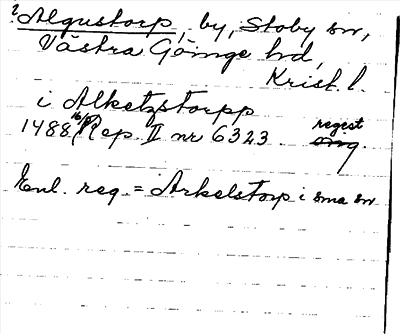 ? Algustorp, by, Stoby sn,
Västra Göinge hd,
Krist. l.
i Alketzstorpp
1488 16/5 Rep. II nr 6323 regest
Enl. reg. = Arkelstorp i sma sn